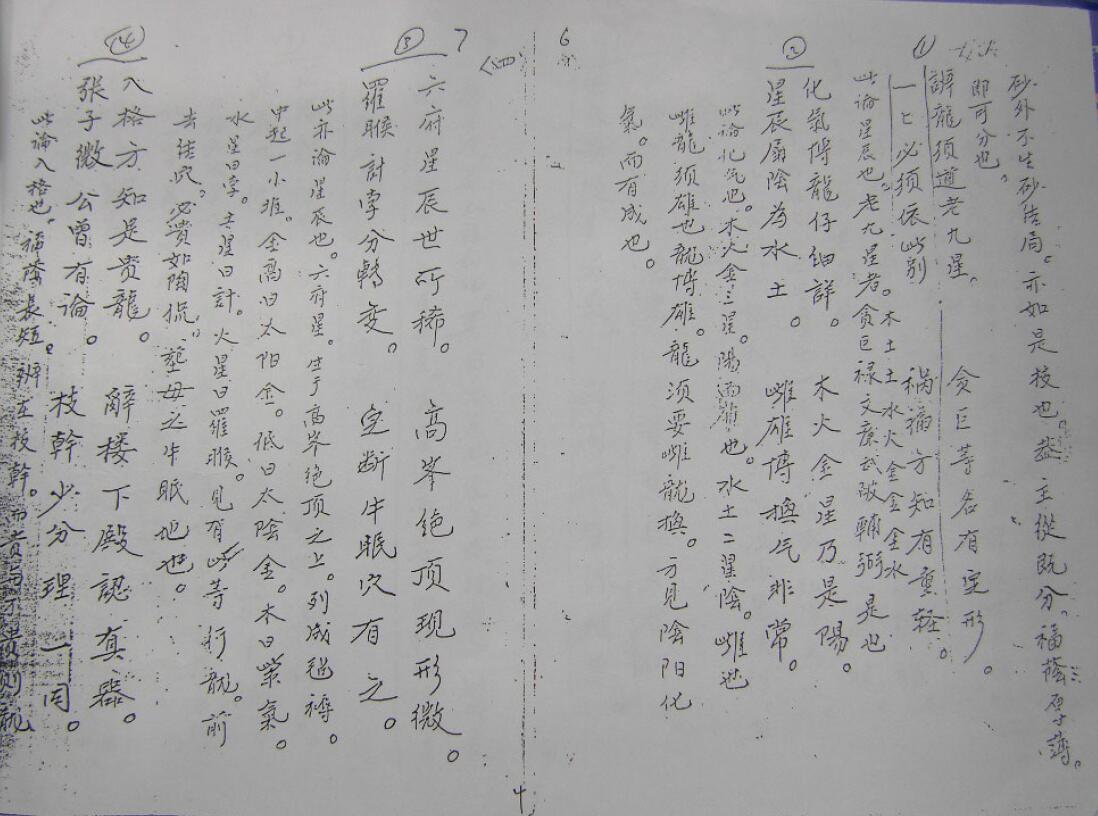 砂外不生砂結局。亦如是枝也。盖主從既分。福蔭厚薄。
即可分也。
①
辞龍須道老九星。 貪巨等名有定形。
一七必须依此别 祸福方知有重轻。
木土土水火金金金水
此論星辰也。老九星者。貪巨禄文廉武破輔弼是也
②
化氣博龍仔细詳。 木火金星乃是陽。
星辰属陰為水土。 雌雄博換气非常。
此論化气也。木火金三星。陽而雄也。水土二星陰。雌也
雌龍须雄也龍博雄。龍须要雌龍換。方见陰阳化
氣。而有成也。
6
7
〈四〉
③
六府星辰世所稀。 高峯绝顶现形微。
羅睺計孛分轉变。 定断牛眠穴有之。
此亦論星辰也。六府星。生于高峯绝顶之上。列成
中起一小堆。金高曰太阳金。低曰太陰金。木曰紫氣。
水星曰孛。土星曰計。火星曰羅睺。见有此等行龍。前
去结穴。必贵如陶侃。塟母之牛眠地也。
④
入格方知是贵龍。 辭楼下殿認真器。
张子微公曾有論。 枝幹少分理一同。
此論入格也。福蔭長短。辨在枝幹。而贵
4